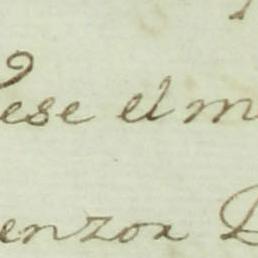 ese el m
enzor D